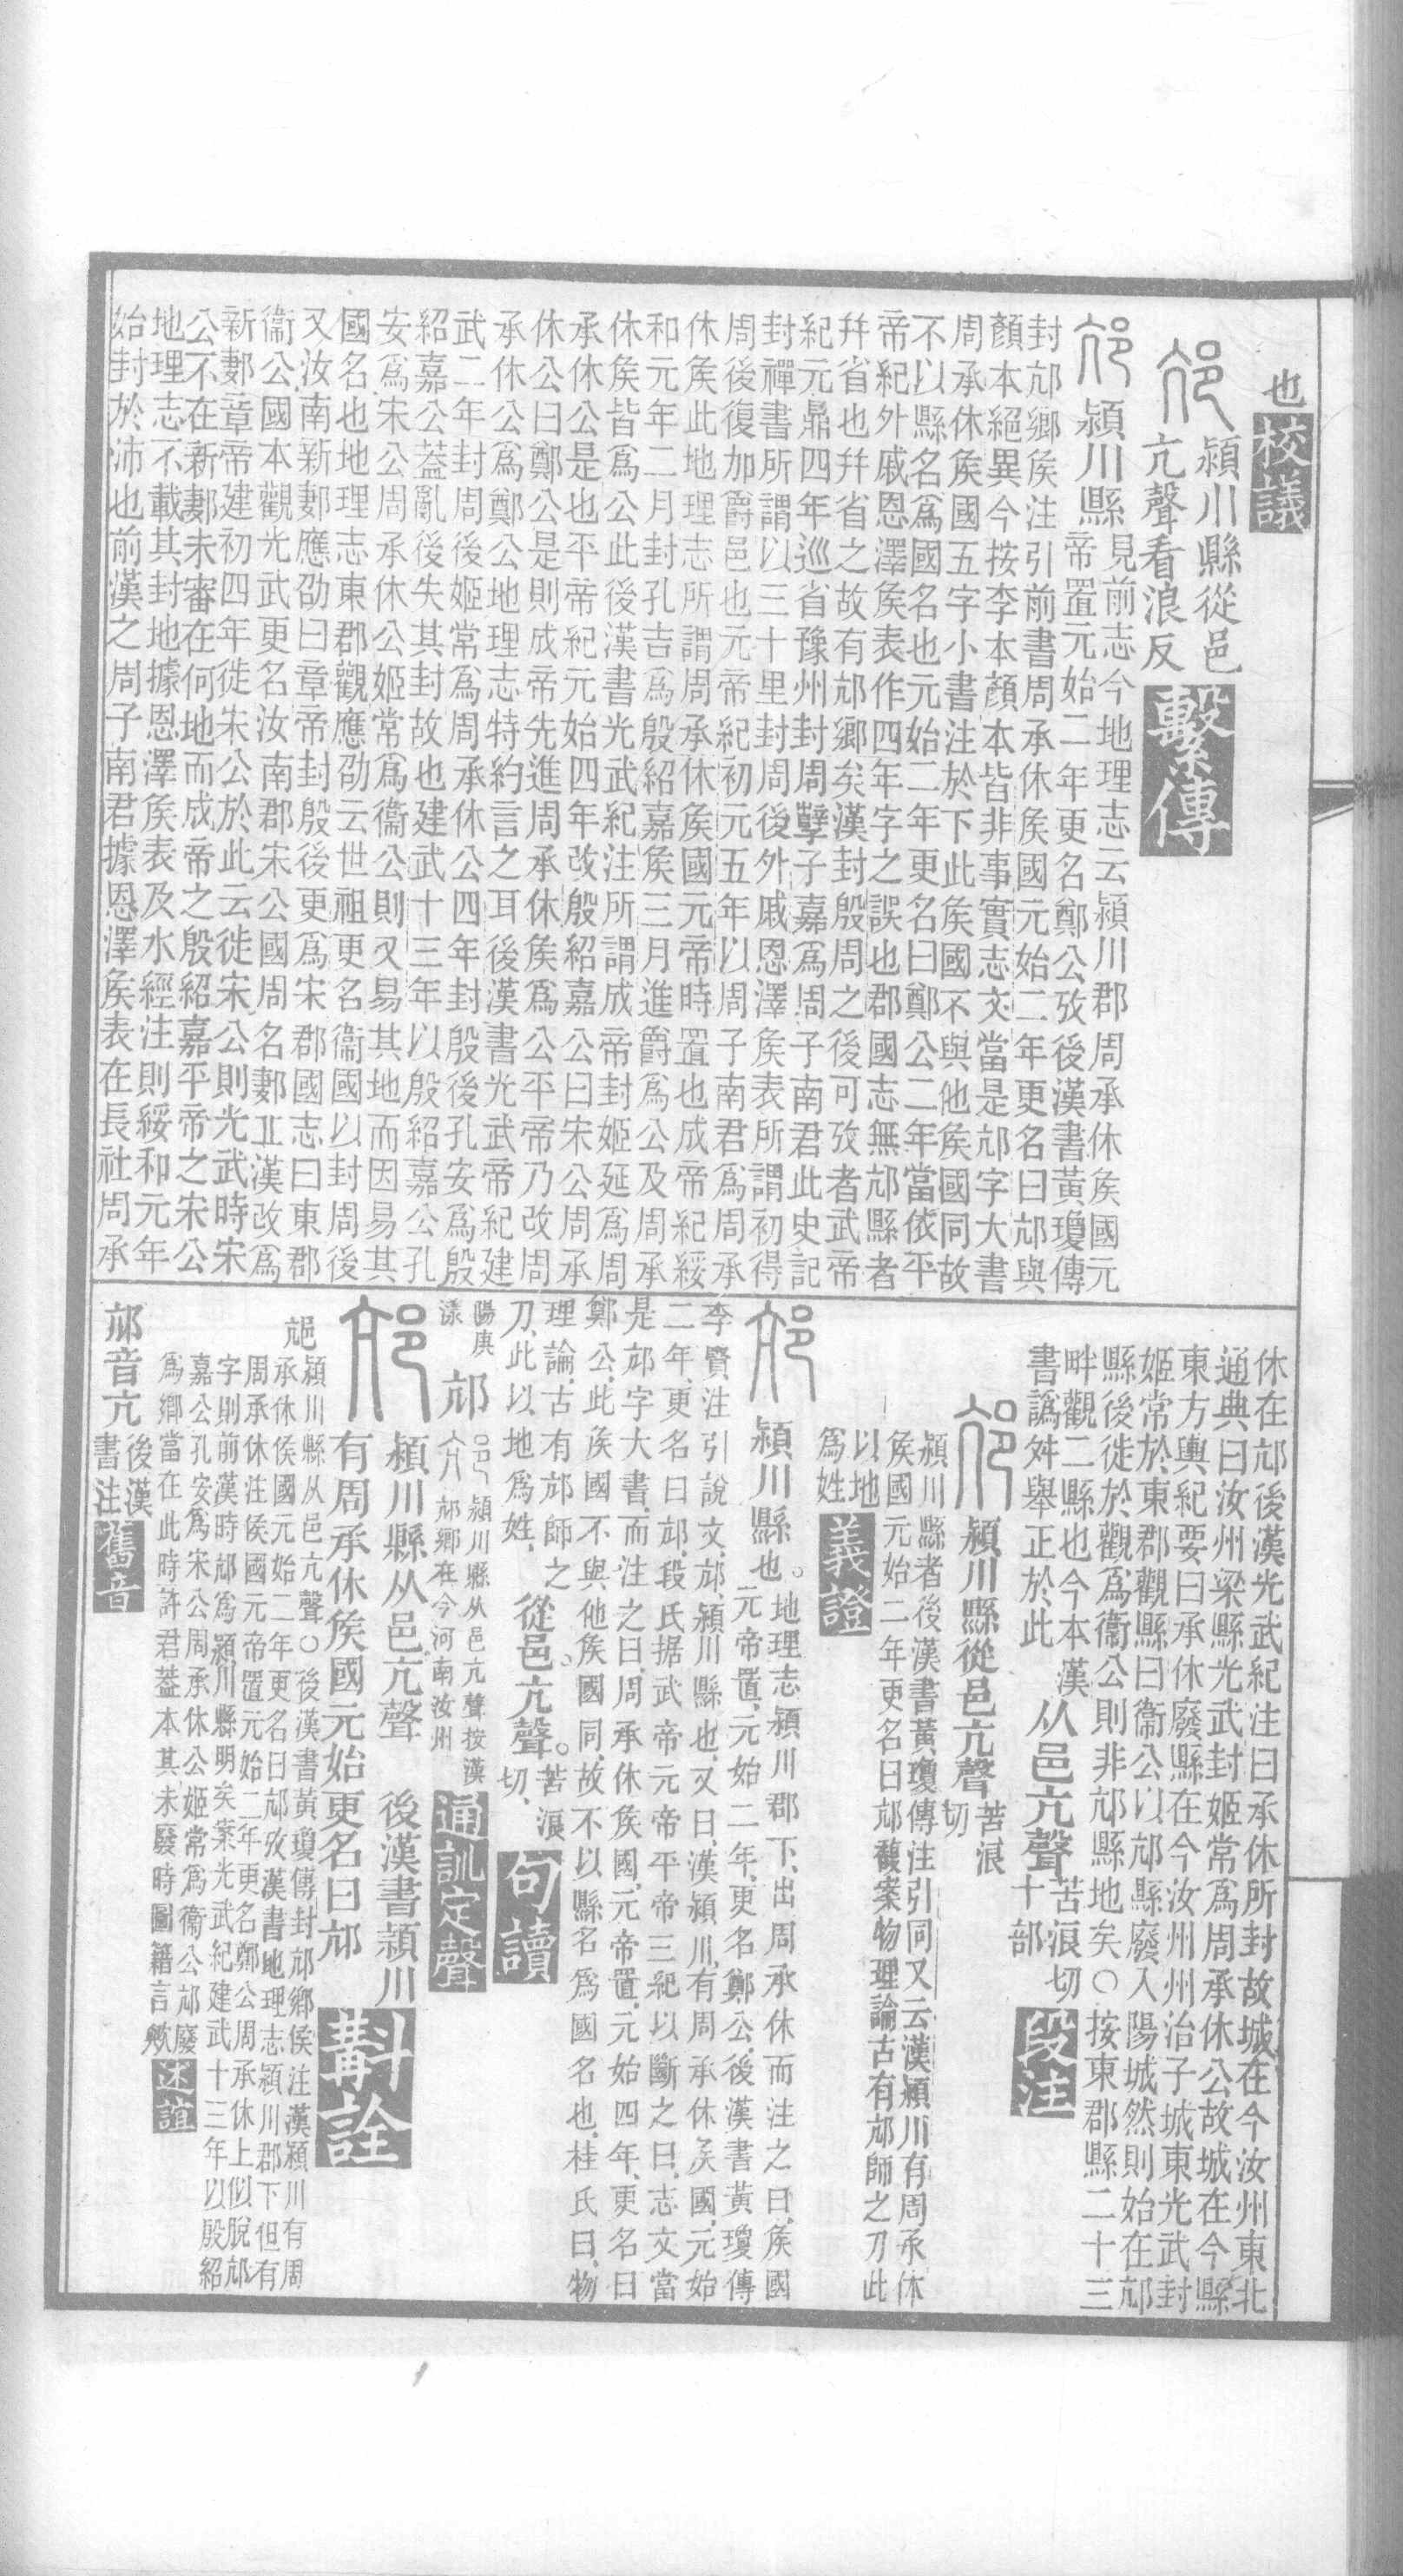 也校議
潁川縣從邑
亢聲看浪反 繫傳
邟潁川縣見前志今地理志云潁川郡周承休矦國元
帝置元始二年更名鄭公攷後漢書黃瓊傳
封邟鄉矦注引前書周承休矦國元始二年更名曰邟與
顏本絕異今按李本顏本皆非事實志文當是邟字大書
周承休矦國五字小書注於下此矦國不與他矦國同故
不以縣名爲國名也元始二年更名曰鄭公二年當依平
帝紀外戚恩澤矦表作四年字之誤也郡國志無邟縣者
幷省也幷省之故有邟鄉矣漢封殷周之後可攷者武帝
紀元鼎四年巡省豫州封周孽子嘉爲周子南君此史記
封禪書所謂以三十里封周後外戚恩澤矦表所謂初得
周後復加爵邑也元帝紀初元五年以周子南君爲周承
休矦此地理志所謂周承休矦國元帝時置也成帝紀綏
和元年二月封孔吉爲殷紹嘉矦三月進爵爲公及周承
休矦皆爲公此後漢書光武紀注所謂成帝封姬延爲周
承休公是也平帝紀元始四年改殷紹嘉公曰宋公周承
休公曰鄭公是則成帝先進周承休矦爲公平帝乃改周
承休公爲鄭公地理志特約言之耳後漢書光武帝紀建
武二年封周後姬常爲周承休公四年封殷後孔安爲殷
紹嘉公葢亂後失其封故也建武十三年以殷紹嘉公孔
安爲宋公周承休公姬常爲衞公則又易其地而因易其
國名也地理志東郡觀應劭云世祖更名衞國以封周後
又汝南新郪應劭曰章帝封殷後更爲宋郡國志曰東郡
衞公國本觀光武更名汝南郡宋公國周名郪丘漢改爲
新郪章帝建初四年徙宋公於此云徙宋公則光武時宋
公不在新郪未審在何地而成帝之殷紹嘉平帝之宋公
地理志不載其封地據恩澤矦表及水經注則綏和元年
始封於沛也前漢之周子南君據恩澤矦表在長社周承
休在邟後漢光武紀注曰承休所封故城在今汝州東北
通典曰汝州梁縣光武封姬常爲周承休公故城在今縣
東方輿紀要曰承休廢縣在今汝州州治子城東光武封
姬常於東郡觀縣曰衞公以邟縣廢入陽城然則始在邟
縣後徙於觀爲衞公則非邟縣地矣○按東郡縣二十三
畔觀二縣也今本漢
書譌舛舉正於此 从邑亢聲苦浪切十部 段注
潁川縣從邑亢聲苦浪切
潁川縣者後漢書黃瓊傳注引同又云漢潁川有周承休
矦國元始二年更名曰邟馥案物理論古有邟師之刀此
以地
爲姓 義證
潁川縣也。地理志潁川郡下、出周承休而注之曰、矦國
元帝置、元始二年、更名鄭公、後漢書黃瓊傳
李賢注引說文、邟、潁川縣也、又曰、漢潁川、有周承休矦國、元始
二年、更名曰邟、段氏据武帝元帝平帝三紀以斷之曰、志文當
是邟字大書、而注之曰、周承休矦國、元帝置、元始四年、更名曰
鄭公、此矦國不與他矦國同、故不以縣名爲國名也、桂氏曰、物
理論、古有邟師之
刀、此以地爲姓、 從邑。亢聲。苦浪切、 句讀
陽庚
漾 邟 潁川縣从邑亢聲按漢
邟鄉在今河南汝州 通訓定聲
潁川縣从邑亢聲 後漢書潁川
有周承休矦國元始更名曰邟 斠詮
邟潁川縣从邑亢聲○後漢書黃瓊傳封邟鄉侯注漢潁川有周
承休侯國元始二年更名曰邟攷漢書地理志潁川郡下但有
周承休注侯國元帝置元始二年更名鄭公周承休上似脫邟
字則前漢時邟爲潁川縣明矣案光武紀建武十三年以殷紹
嘉公孔安爲宋公周承休公姬常爲衞公邟廢
爲鄉當在此時許君葢本其未廢時圖籍言歟 述誼
邟音亢後漢
書注 舊音